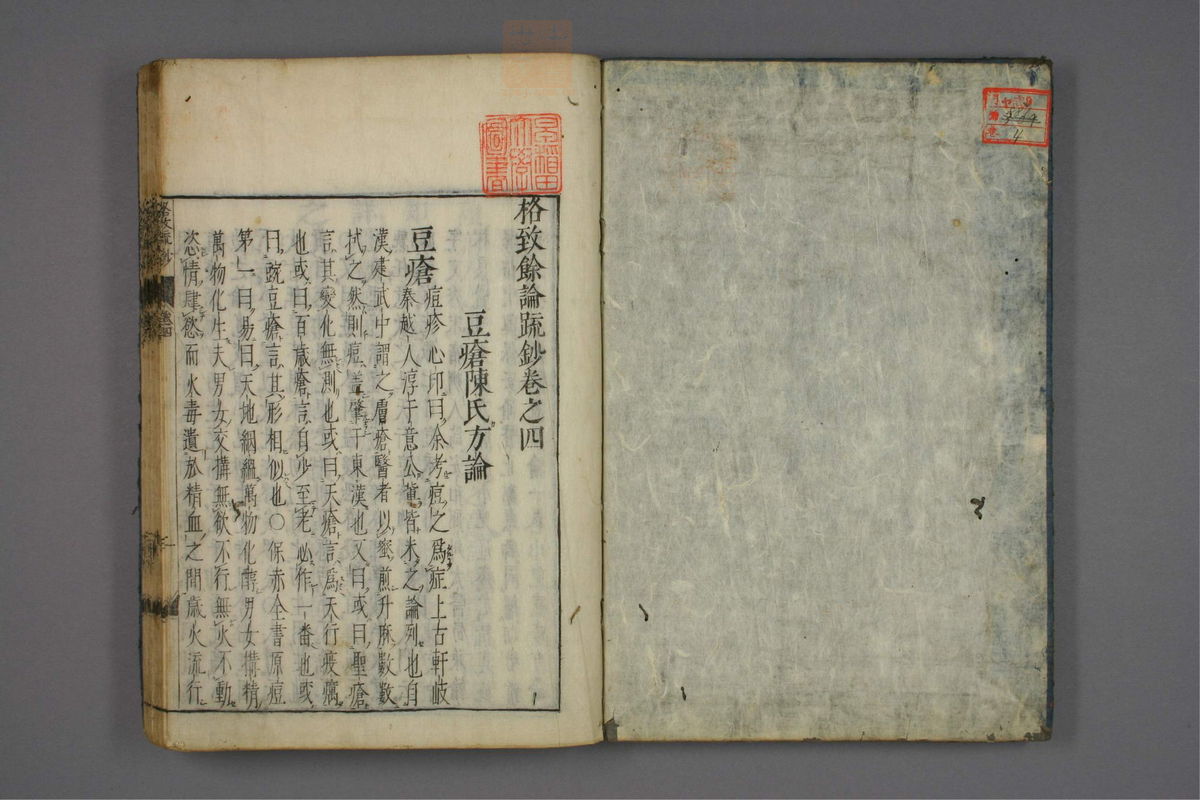 格致餘論疏鈔卷之四
豆瘡陳氏方論
豆瘡 痘疹心印曰余考痘之爲症上古軒岐
秦越人淳于意公輩皆未之論列也自
漢建武中謂之虜瘡醫者以蜜煎升麻數數
拭之然則痘蓋肇于東漢也又曰或曰聖瘡
言其變化無測也或曰天瘡言爲天行疫癘
也或曰百歲瘡言自少至老必作一番也或
曰豌豆瘡言其形相似也○保赤全書原痘
第一曰易曰天地絪縕萬物化醇男女搆精
萬物化生夫男女交搆無欲不行無火不動
恣情肆慾而火毒遺於精血之間歲火流行
早稲田大學圖書
4